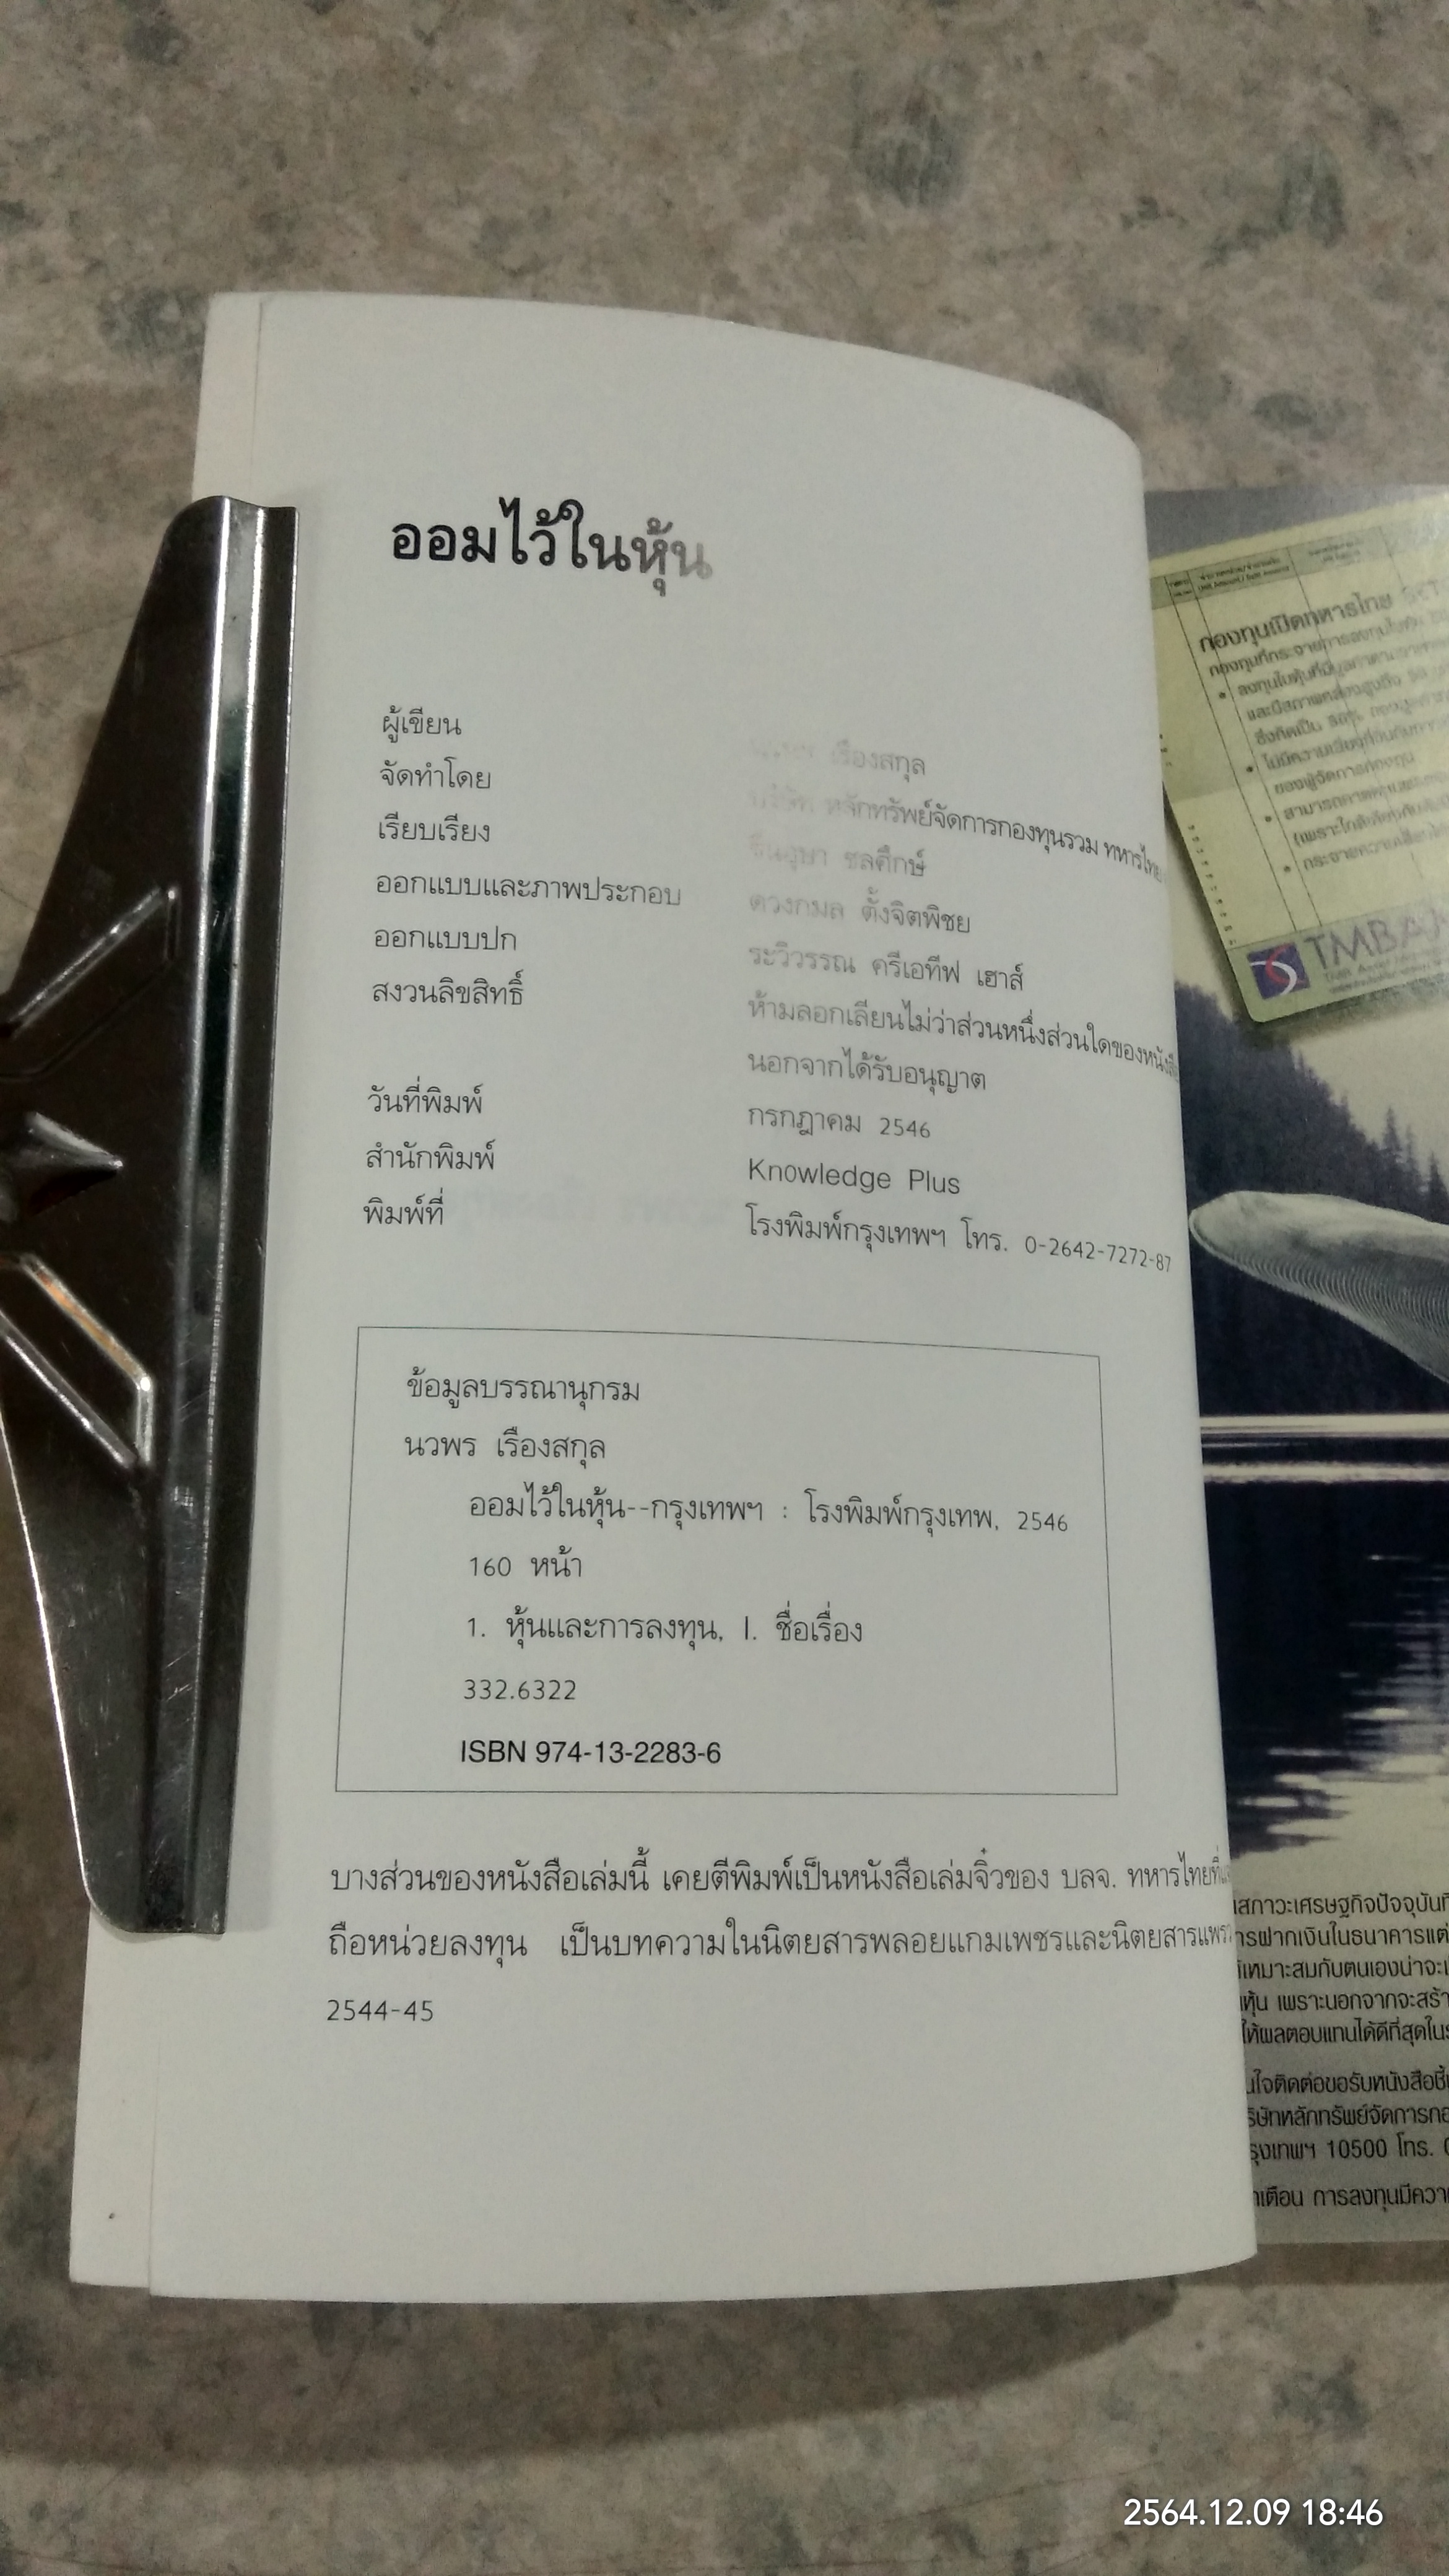 ออมไว้ในหุ้น
ผู้เขียน เรืองสกุล
จัดทำโดย บริษัท หลักทรัพย์จัดการกองทุนรวม ทหารไทย
เรียบเรียง ชลศึกษ์
ออกแบบและภาพประกอบ ดวงกมล ตั้งจิตพิชย
ออกแบบปก ระวิวรรณ ครีเอทีฟ เฮาส์
สงวนลิขสิทธิ์ ห้ามลอกเลียนไม่ว่าส่วนหนึ่งส่วนใดของหนังสือ
นอกจากได้รับอนุญาต
วันที่พิมพ์ กรกฎาคม 2546
สำนักพิมพ์ Knowledge Plus
พิมพ์ที่ โรงพิมพ์กรุงเทพฯ โทร. 0-2642-7272-87
ข้อมูลบรรณานุกรม
นวพร เรืองสกุล
ออมไว้ในหุ้น--กรุงเทพฯ : โรงพิมพ์กรุงเทพ, 2546
160 หน้า
1. หุ้นและการลงทุน, I. ชื่อเรื่อง
332.6322
ISBN 974-13-2283-6
บางส่วนของหนังสือเล่มนี้ เคยตีพิมพ์เป็นหนังสือเล่มจิ๋วของ บลจ. ทหารไทย
ถือหน่วยลงทุน เป็นบทความในนิตยสารพลอยแกมเพชรและนิตยสารแพร
2544-45
กองทุนเปิดทหารไทย
กองทุนที่กระจายการลงทุนใน
TMBA
สภาวะเศรษฐกิจปัจจุบัน
ารฝากเงินในธนาคารแต่
เหมาะสมกับตนเองน่าจะเ
หุ้น เพราะนอกจากจะสร้า
ให้ผลตอบแทนได้ดีที่สุดใน
นใจติดต่อขอรับหนังสือชี้
ริษัทหลักทรัพย์จัดการกอ
รุงเทพฯ 10500 โทร.
าเตือน การลงทุนมีควา
2564.12.09 18:46